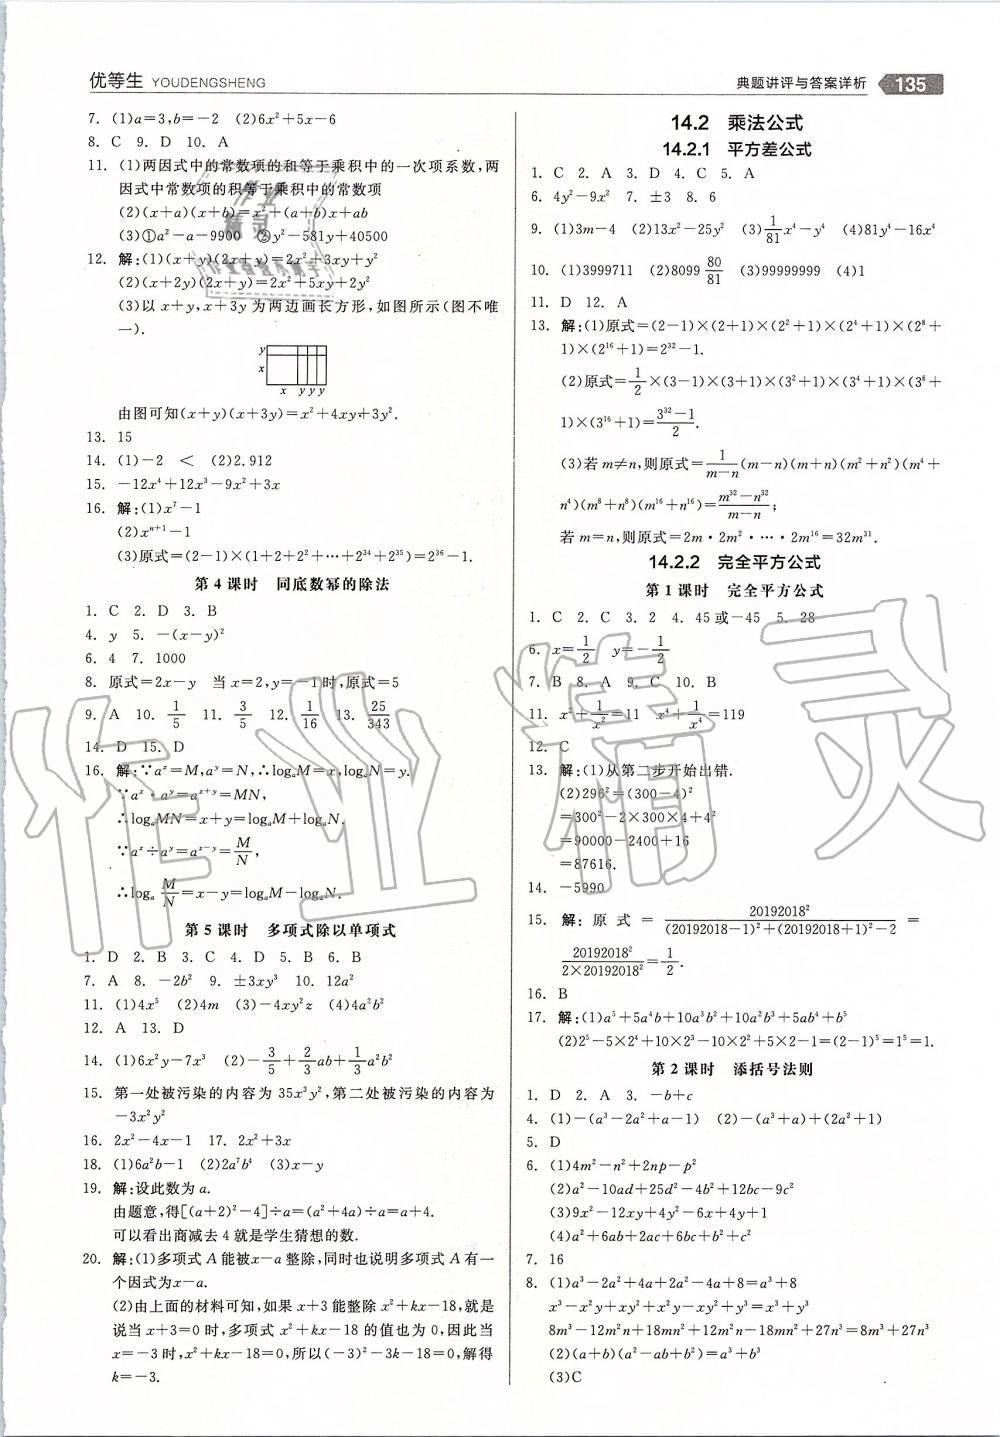 优等生 YOUDENGSHENG
典题讲评与答案详析 135
7. (1)a=3,b=-2 (2)6x²+5x-6
8. C 9. D 10. A
11. (1)两因式中的常数项的和等于乘积中的一次项系数,两
因式中常数项的积等于乘积中的常数项
(2)(x+a)(x+b)=x²+(a+b)x+ab
(3)①a²-a-9900 ②y²-581y+40500
12. 解:(1)(x+y)(2x+y)=2x²+3xy+y²
(2)(x+2y)(2x+y)=2x²+5xy+2y²
(3)以 x+y,x+3y 为两边画长方形,如图所示(图不唯
一).
y
x
x y y y
由图可知(x+y)(x+3y)=x²+4xy+3y².
13. 15
14. (1)-2 < (2)2.912
15. -12x⁴+12x³-9x²+3x
16. 解:(1)x⁷-1
(2)xⁿ⁺¹-1
(3)原式=(2-1)×(1+2+2²+…+2³⁴+2³⁵)=2³⁶-1.
第 4 课时 同底数幂的除法
1. C 2. D 3. B
4. y 5. -(x-y)²
6. 4 7. 1000
8. 原式=2x-y 当 x=2,y=-1时,原式=5
9. A 10. 1/5 11. 3/5 12. 1/16 13. 25/343
14. D 15. D
16. 解:∵aˣ=M,aʸ=N,∴logₐM=x,logₐN=y.
∵aˣ·aʸ=aˣ⁺ʸ=MN,
∴logₐMN=x+y=logₐM+logₐN.
∵aˣ÷aʸ=aˣ⁻ʸ=M/N,
∴logₐ M/N=x-y=logₐM-logₐN.
第 5 课时 多项式除以单项式
1. D 2. B 3. C 4. D 5. B 6. B
7. A 8. -2b² 9. ±3xy³ 10. 12a²
11. (1)4x⁵ (2)4m (3)-4xy²z (4)4a²b²
12. A 13. D
14. (1)6x²y-7x³ (2)-3/5+2/3ab+1/3a²b²
15. 第一处被污染的内容为 35x³y²,第二处被污染的内容为
-3x²y²
16. 2x²-4x-1 17. 2x²+3x
18. (1)6a²b-1 (2)2a⁷b⁴ (3)x-y
19. 解:设此数为 a.
由题意,得[(a+2)²-4]÷a=(a²+4a)÷a=a+4.
可以看出商减去 4 就是学生猜想的数.
20. 解:(1)多项式 A 能被x-a 整除,同时也说明多项式 A 有一
个因式为x-a.
(2)由上面的材料可知,如果 x+3 能整除 x²+kx-18,就是
说当 x+3=0 时,多项式 x²+kx-18 的值也为 0,因此当
x=-3 时,x²+kx-18=0,所以(-3)²-3k-18=0,解得
k=-3.
14.2 乘法公式
14.2.1 平方差公式
1. C 2. A 3. D 4. C 5. A
6. 4y²-9x² 7. ±3 8. 6
9. (1)3m-4 (2)13x²-25y² (3)1/81x⁴-y⁴ (4)81y⁴-16x⁴
10. (1)3999711 (2)8099 80/81 (3)99999999 (4)1
11. D 12. A
13. 解:(1)原式=(2-1)×(2+1)×(2²+1)×(2⁴+1)×(2⁸+
1)×(2¹⁶+1)=2³²-1.
(2)原式=1/2×(3-1)×(3+1)×(3²+1)×(3⁴+1)×(3⁸+
1)×(3¹⁶+1)=(3³²-1)/2.
(3)若 m≠n,则原式=1/(m-n)(m-n)(m+n)(m²+n²)(m⁴+
n⁴)(m⁸+n⁸)(m¹⁶+n¹⁶)=(m³²-n³²)/(m-n);
若 m=n,则原式=2m·2m²·…·2m¹⁶=32m³¹.
14.2.2 完全平方公式
第 1 课时 完全平方公式
1. C 2. C 3. 2 4. 45 或-45 5. 28
6. x=1/2 y=-1/2
7. B 8. A 9. C 10. B
11. x²+1/x²=11 x⁴+1/x⁴=119
12. C
13. 解:(1)从第二步开始出错.
(2)296²=(300-4)²
=300²-2×300×4+4²
=90000-2400+16
=87616.
14. -5990
15. 解:原式=20192018²/((20192018-1)²+(20192018+1)²-2)=
20192018²/(2×20192018²)=1/2.
16. B
17. 解:(1)a⁵+5a⁴b+10a³b²+10a²b³+5ab⁴+b⁵
(2)2⁵-5×2⁴+10×2³-10×2²+5×2-1=(2-1)⁵=1⁵=1.
第 2 课时 添括号法则
1. D 2. A 3. -b+c
4. (1)-(a³-2a²+a-1) (2)-(a³+a)+(2a²+1)
5. D
6. (1)4m²-n²+2np-p²
(2)a²-10ad+25d²-4b²+12bc-9c²
(3)9x²-12xy+4y²-6x+4y+1
(4)a²+6ab+2ac+6bc+b²+c²
7. 16
8. (1)a³-2a²+4a+2a²-4a+8=a³+8
x³-x²y+xy²+x²y-xy²+y³=x³+y³
8m³-12m²n+18mn²+12m²n-18mn²+27n³=8m³+27n³
(2)(a+b)(a²-ab+b²)=a³+b³
(3)C
作业精灵